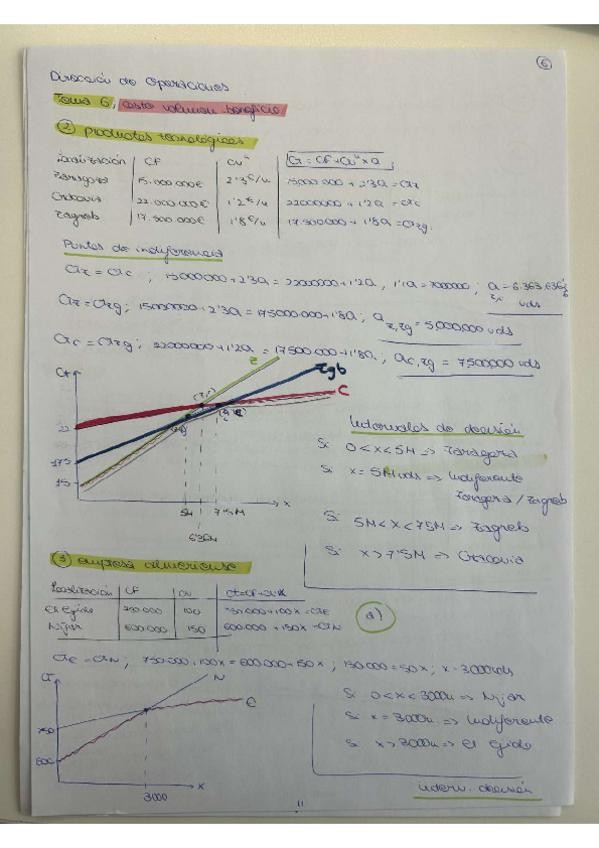 6
Dirección de Operaciones
Tema 6, costo volumen beneficio
② productos tecnológicos
Localización CF CVu CT = CF + CVu × Q
Zaragoza 15.000.000€ 2'3€/u 15000000 + 2'3Q = CTz
Cracovia 22.000.000€ 1'2€/u 22000000 + 1'2Q = CTc
Zagreb 17.500.000€ 1'8€/u 17.500000 + 1'8Q = CTzg
Puntos de indiferencia
CTz = CTc ; 15000000 + 2'3Q = 22000000 + 1'2Q , 1'1Q = 7000000 ; Q z,c = 6.363.636 uds
CTz = CTzg ; 15000000 + 2'3Q = 17500.000 + 1'8Q , Q z,zg = 5,000000 uds
CTc = CTzg ; 22000000 + 1'2Q = 17500.000 + 1'8Q , Qc,zg = 7500000 uds
CT Z Zgb C
22
17'5
15
5M 7'5M x
Intervalos de decisión
Si 0 < x < 5M => Zaragoza
Si x = 5M uds => Indiferente
Zaragoza / Zagreb
Si 5M < x < 7'5M => Zagreb
Si x > 7'5M => Cracovia
③ empresa almeriense
Localización CF CVu
El Ejido 750.000 100 750.000 + 100x = CTE
Nijar 600.000 150 600.000 + 150x = CTN
a)
CTE = CTN ; 750.000 + 100x = 600.000 + 150x ; 150.000 = 50x ; x = 3000 uds
CT N E
750
600
3000 x
Si 0 < x < 3000u => Nijar
Si x = 3000u => Indiferente
Si x > 3000u => El Ejido
interv. decisión
11